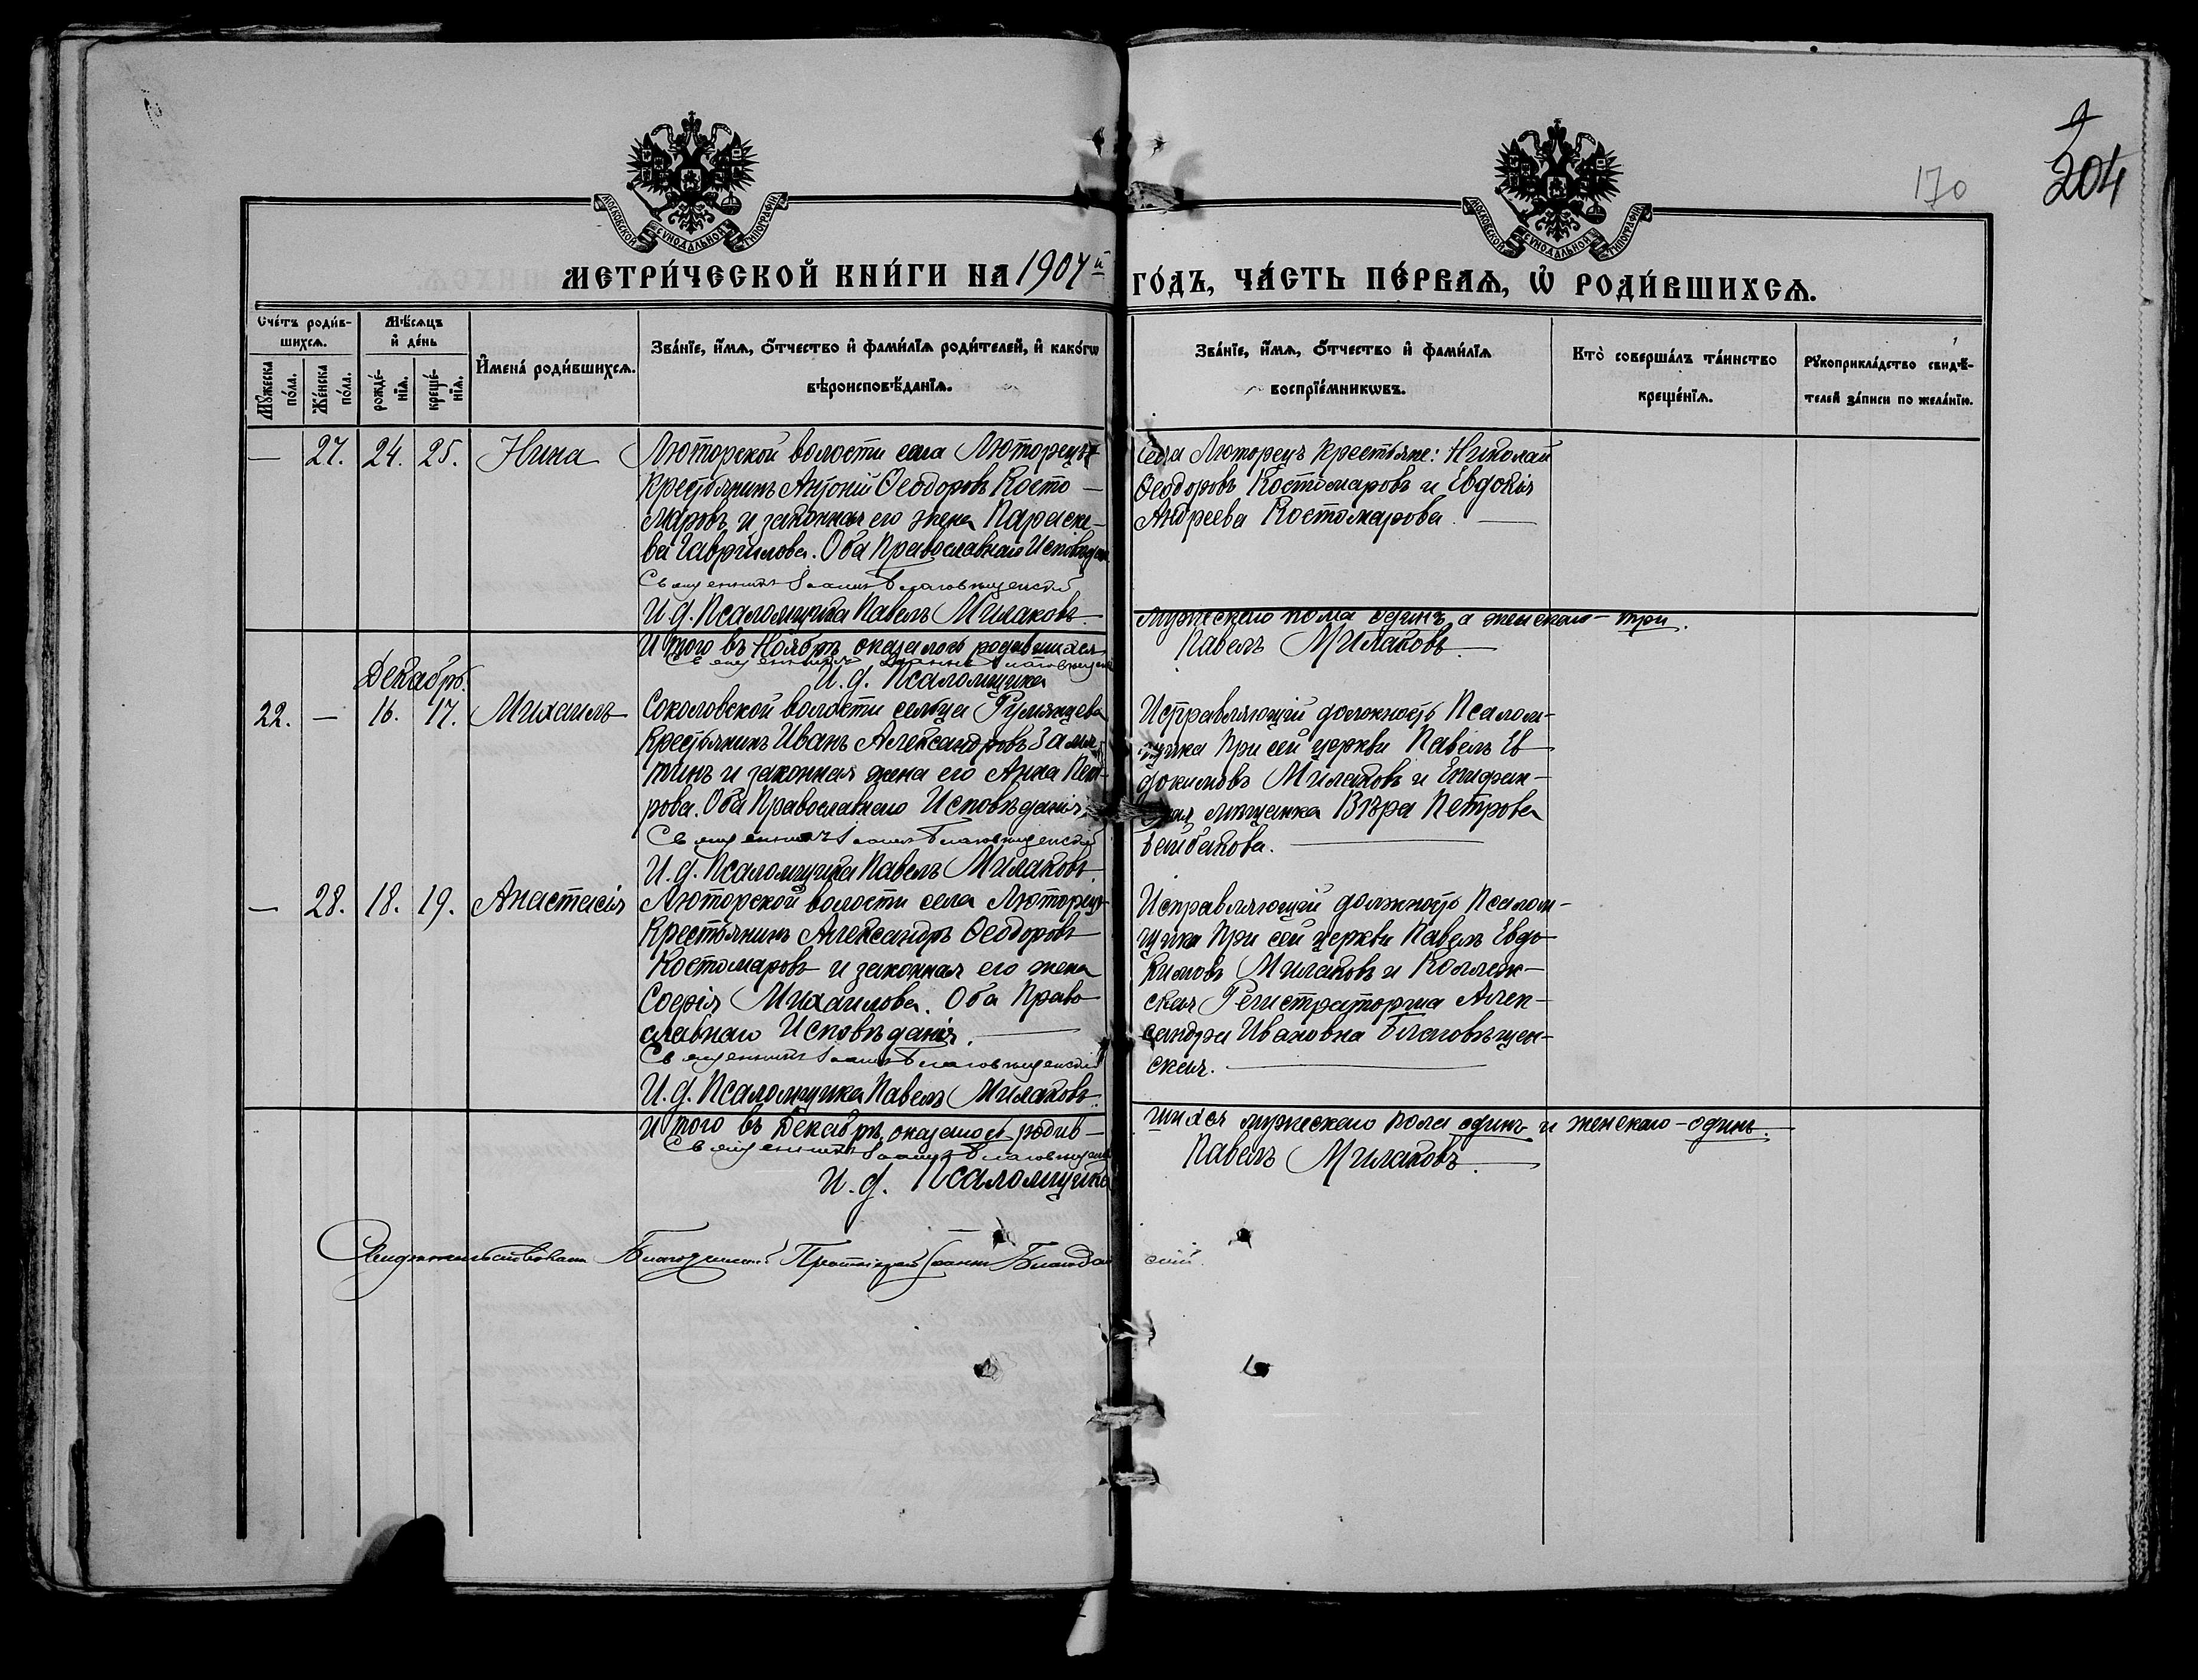 170
204
МОСКОВСКОЙ СѴНОДАЛЬНОЙ ТИПОГРАФІИ
МОСКОВСКОЙ СѴНОДАЛЬНОЙ ТИПОГРАФІИ
МЕТРИ́ЧЕСКОЙ КНИ́ГИ НА 1907й
ГО́ДЪ, ЧА́СТЬ ПЕ́РВАѦ, Ѽ РОДИ́ВШИХСѦ.
Сче́тъ роди́в-
шихсѧ.
Мꙋ́жеска по́ла.
Же́нска по́ла.
Мѣ́сѧцъ
и҆ де́нь
рожде́-
нїѧ.
креще́-
нїѧ.
И҆мена̀ роди́вшихсѧ.
Зва́нїе, и҆́мѧ, ѻ҆́тчество и҆ фами́лїѧ роди́телей, и҆ како́гѡ
вѣроисповѣ́данїѧ.
Зва́нїе, и҆́мѧ, ѻ҆́тчество и҆ фами́лїѧ
воспрїе́мникѡвъ.
Кто̀ соверша́лъ та́инство
креще́нїѧ.
Рꙋкоприкла́дство свидѣ́-
телей за́писи по жела́нїю.
— 27. 24. 25. Нина
Люторской волости села Люторецъ
Крестьянинъ Антоній Ѳеодоровъ Косто-
маровъ и законная его жена Параске-
ва Гаврилова. Оба Православнаго Исповѣдан
Священникъ Іоаннъ Благовѣщенскій
И. д. Псаломщика Павелъ Милаковъ.
Села Люторецъ Крестьяне: Николай
Ѳеодоровъ Костомаровъ и Евдокія
Андреева Костомарова. —
Итого въ Ноябрѣ оказалось родившихся
мужескаго пола одинъ, а женскаго – три.
Священникъ Іоаннъ Благовѣщен
И. д. Псаломщика
Павелъ Милаковъ.
Декабрь.
22. — 16. 17. Михаилъ
Соколовской волости сельца Румянцева
Крестьянинъ Иванъ Александровъ Замя-
тинъ и законная жена его Анна Пет-
рова. Оба Православнаго Исповѣданія.
Священникъ Іоаннъ Благовѣщенскій
И. д. Псаломщика Павелъ Милаковъ
Исправляющій должность Псалом-
щика при сей церкви Павелъ Ев-
докимовъ Милаковъ и Епифан-
ская мѣщанка Вѣра Петрова
Бейбакова. —
— 28. 18. 19. Анастасія
Люторской волости села Люторецъ
Крестьянинъ Александръ Ѳеодоровъ
Костомаровъ и законная его жена
Софія Михаилова. Оба Право-
славнаго Исповѣданія. —
Священникъ Іоаннъ Благовѣщенскій
И. д. Псаломщика Павелъ Милаковъ.
Исправляющій должность Псалом-
щика при сей церкви Павелъ Евдо-
кимовъ Милаковъ и Коллеж-
ская Регистраторша Алек-
сандра Ивановна Благовѣщен-
ская. —
Итого въ Декабрѣ оказалось родив-
шихся мужескаго пола одинъ и женскаго – одинъ.
Священникъ Іоаннъ Благовѣщен
И. д. Псаломщика
Павелъ Милаковъ.
Свидѣтельствовалъ Благочинный Протоіерей Іоаннъ